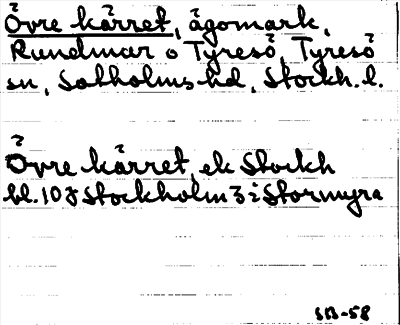 Övre kärret, ägomark,
Rundmar o Tyresö, Tyresö
sn, Sotholms hd, Stockh. l.
Övre kärret, ek Stockh
bl. 10 J Stockholm 3 i Stormyra
SB-58